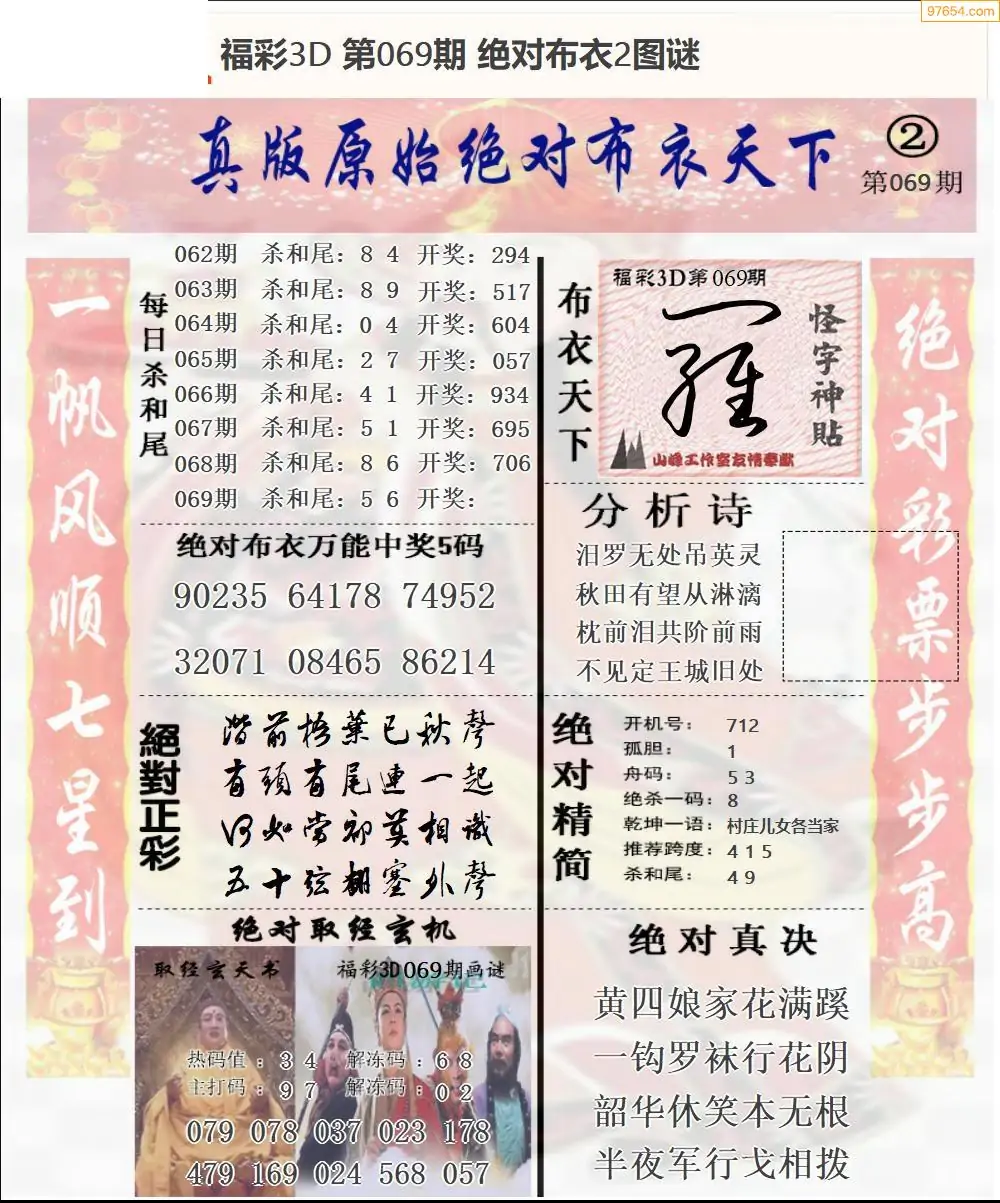 97654.com
福彩3D 第069期 绝对布衣2图谜
真版原始绝对布衣天下
②
第069期
一帆风顺七星到
每日杀和尾
062期 杀和尾：8 4 开奖：294
063期 杀和尾：8 9 开奖：517
064期 杀和尾：0 4 开奖：604
065期 杀和尾：2 7 开奖：057
066期 杀和尾：4 1 开奖：934
067期 杀和尾：5 1 开奖：695
068期 杀和尾：8 6 开奖：706
069期 杀和尾：5 6 开奖：
绝对布衣万能中奖5码
90235 64178 74952
32071 08465 86214
絕對正彩
階前梧葉已秋聲
有頭有尾連一起
何如當初莫相識
五十弦翻塞外聲
绝对取经玄机
取经玄天书
福彩3D069期画谜
热码值：3 4 解冻码：6 8
主打码：9 7 解冻码：0 2
079 078 037 023 178
479 169 024 568 057
布衣天下
福彩3D第069期
怪字神貼
山峰工作室友情奉献
分析诗
汨罗无处吊英灵
秋田有望从淋漓
枕前泪共阶前雨
不见定王城旧处
绝对精简
开机号：712
孤胆：1
舟码：5 3
绝杀一码：8
乾坤一语：村庄儿女各当家
推荐跨度：4 1 5
杀和尾：4 9
绝对真决
黄四娘家花满蹊
一钩罗袜行花阴
韶华休笑本无根
半夜军行戈相拨
绝对彩票步步高